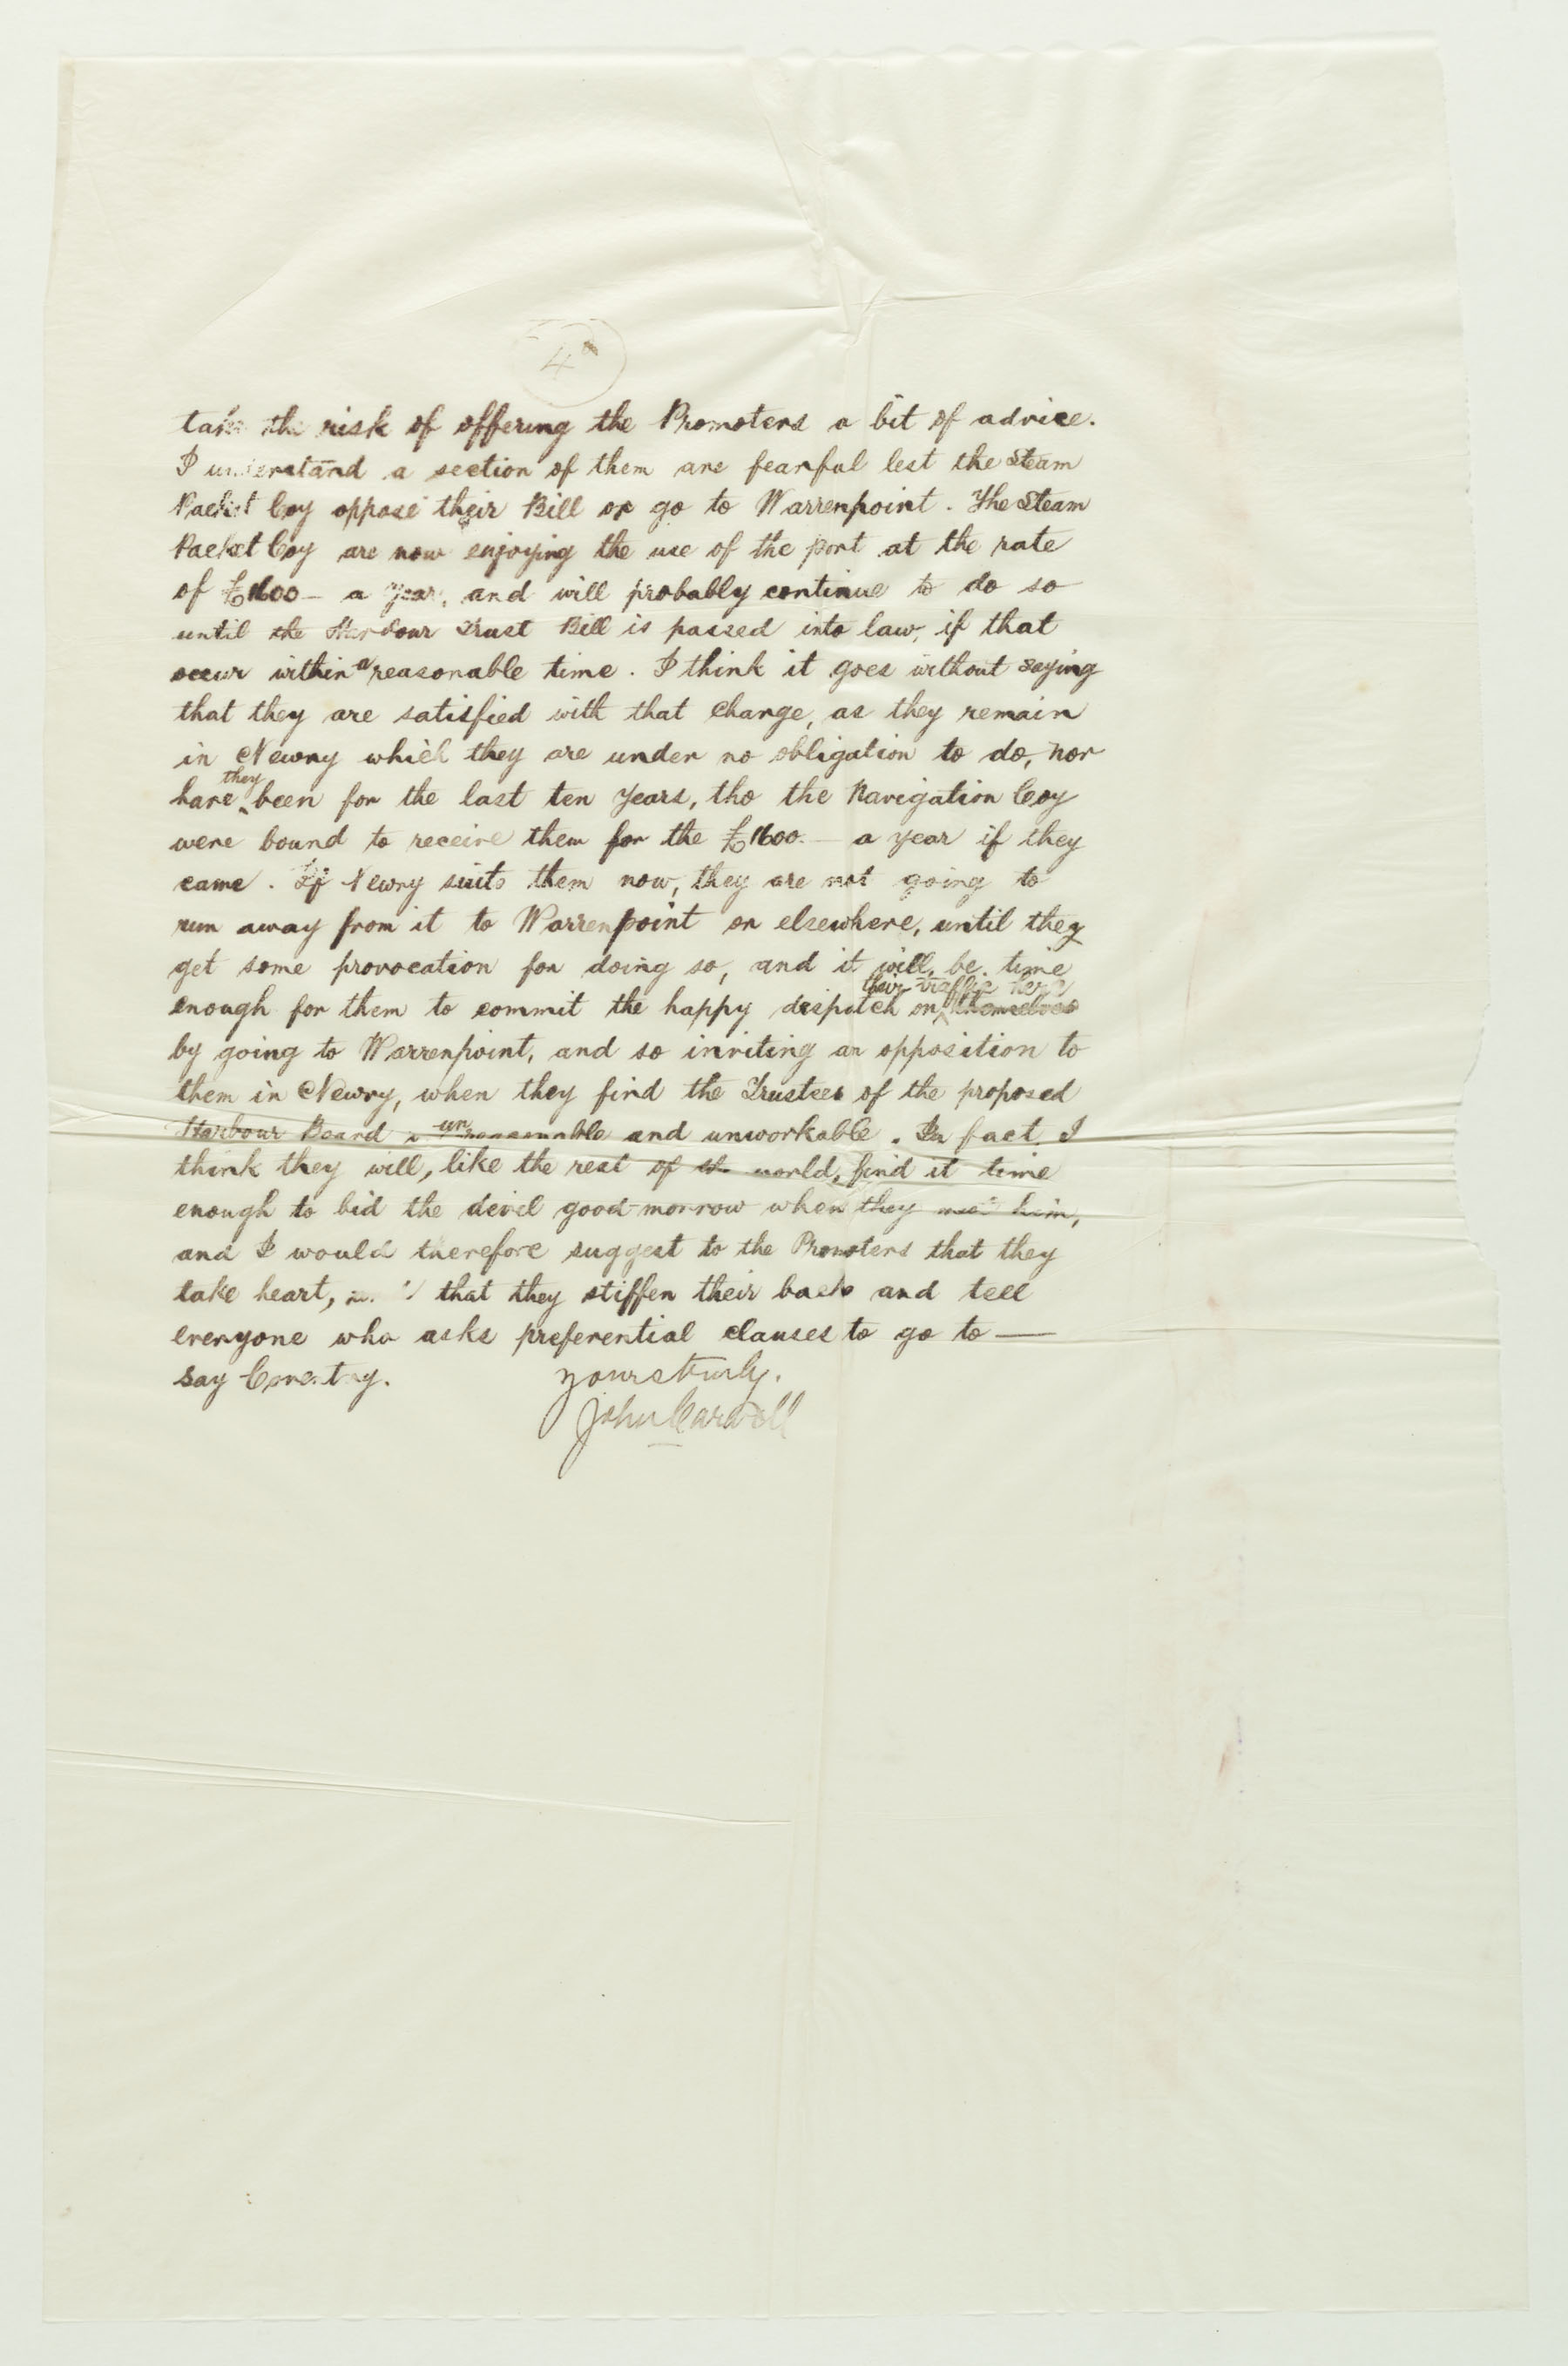 4
take the risk of offering the Promoters a bit of advice.
I understand a section of them are fearful lest the Steam
Packet Coy oppose their Bill or go to Warrenpoint. The Steam
Packet Coy are now enjoying the use of the port at the rate
of £1600 — a year, and will probably continue to do so
until the Harbour Trust Bill is passed into law, if that
occur within a reasonable time. I think it goes without saying
that they are satisfied with that change, as they remain
in Newry which they are under no obligation to do, nor
have they been for the last ten years, tho the Navigation Coy
were bound to receive them for the £1600. — a year if they
came. If Newry suits them now, they are not going to
run away from it to Warrenpoint or elsewhere, until they
get some provocation for doing so, and it will be time
enough for them to commit the happy dispatch on their traffic here themselves
by going to Warrenpoint, and so inviting an opposition to
them in Newry, when they find the Trustees of the proposed
Harbour Board unreasonable and unworkable. In fact I
think they will, like the rest of the world, find it time
enough to bid the devil good-morrow when they meet him,
and I would therefore suggest to the Promoters that they
take heart, that they stiffen their back and tell
everyone who asks preferential clauses to go to —
say Coventry.
yours truly.
John Carvill